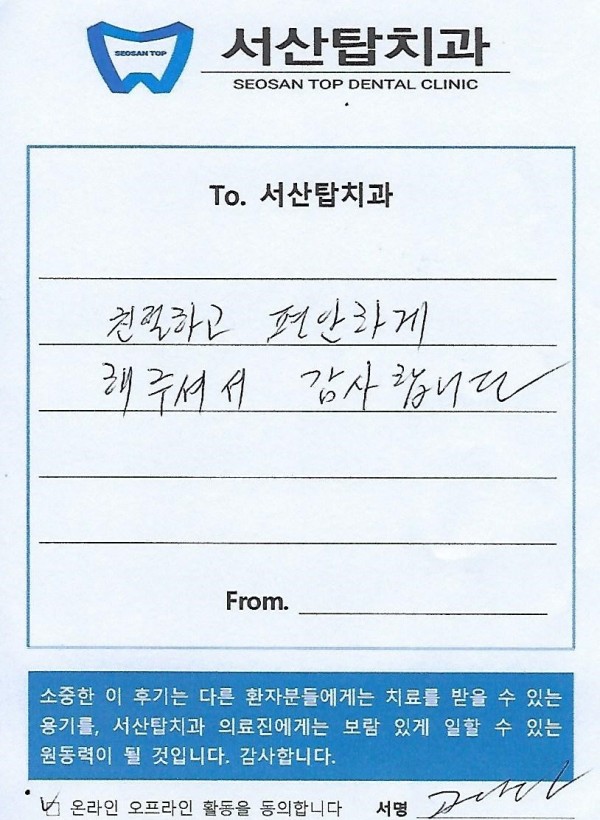 SEOSAN TOP
서산탑치과
SEOSAN TOP DENTAL CLINIC
To. 서산탑치과
친절하고 편안하게
해주셔서 감사합니다
From.
소중한 이 후기는 다른 환자분들에게는 치료를 받을 수 있는
용기를, 서산탑치과 의료진에게는 보람 있게 일할 수 있는
원동력이 될 것입니다. 감사합니다.
온라인 오프라인 활동을 동의합니다 서명